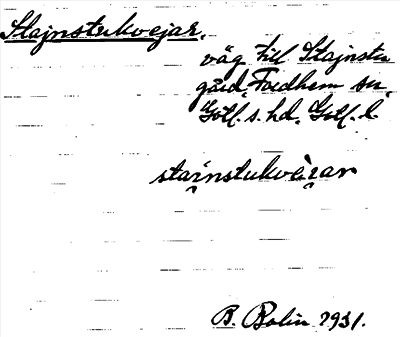 Stajnstukvejar.
väg till Stajnstu
gård, Fardhem sn,
Gotl. s. hd, Gotl. l.
stai̯nstukvèi̯ar
B. Bolin 1931.